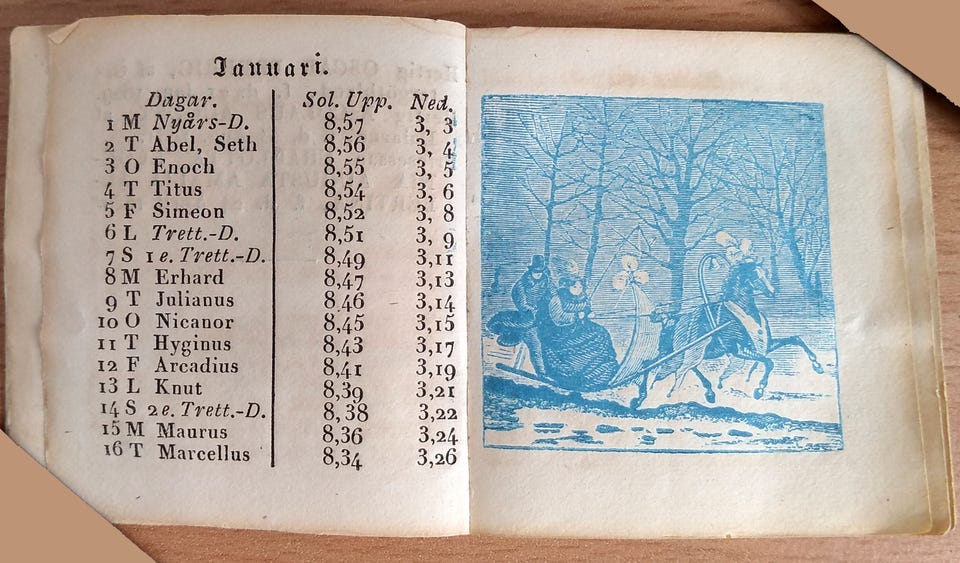 Januari.
Dagar. Sol. Upp. Ned.
1 M Nyårs-D. 8,57 3, 3
2 T Abel, Seth 8,56 3, 4
3 O Enoch 8,55 3, 5
4 T Titus 8,54 3, 6
5 F Simeon 8,52 3, 8
6 L Trett.-D. 8,51 3, 9
7 S 1 e. Trett.-D. 8,49 3,11
8 M Erhard 8,47 3,13
9 T Julianus 8,46 3,14
10 O Nicanor 8,45 3,15
11 T Hyginus 8,43 3,17
12 F Arcadius 8,41 3,19
13 L Knut 8,39 3,21
14 S 2 e. Trett.-D. 8,38 3,22
15 M Maurus 8,36 3,24
16 T Marcellus 8,34 3,26